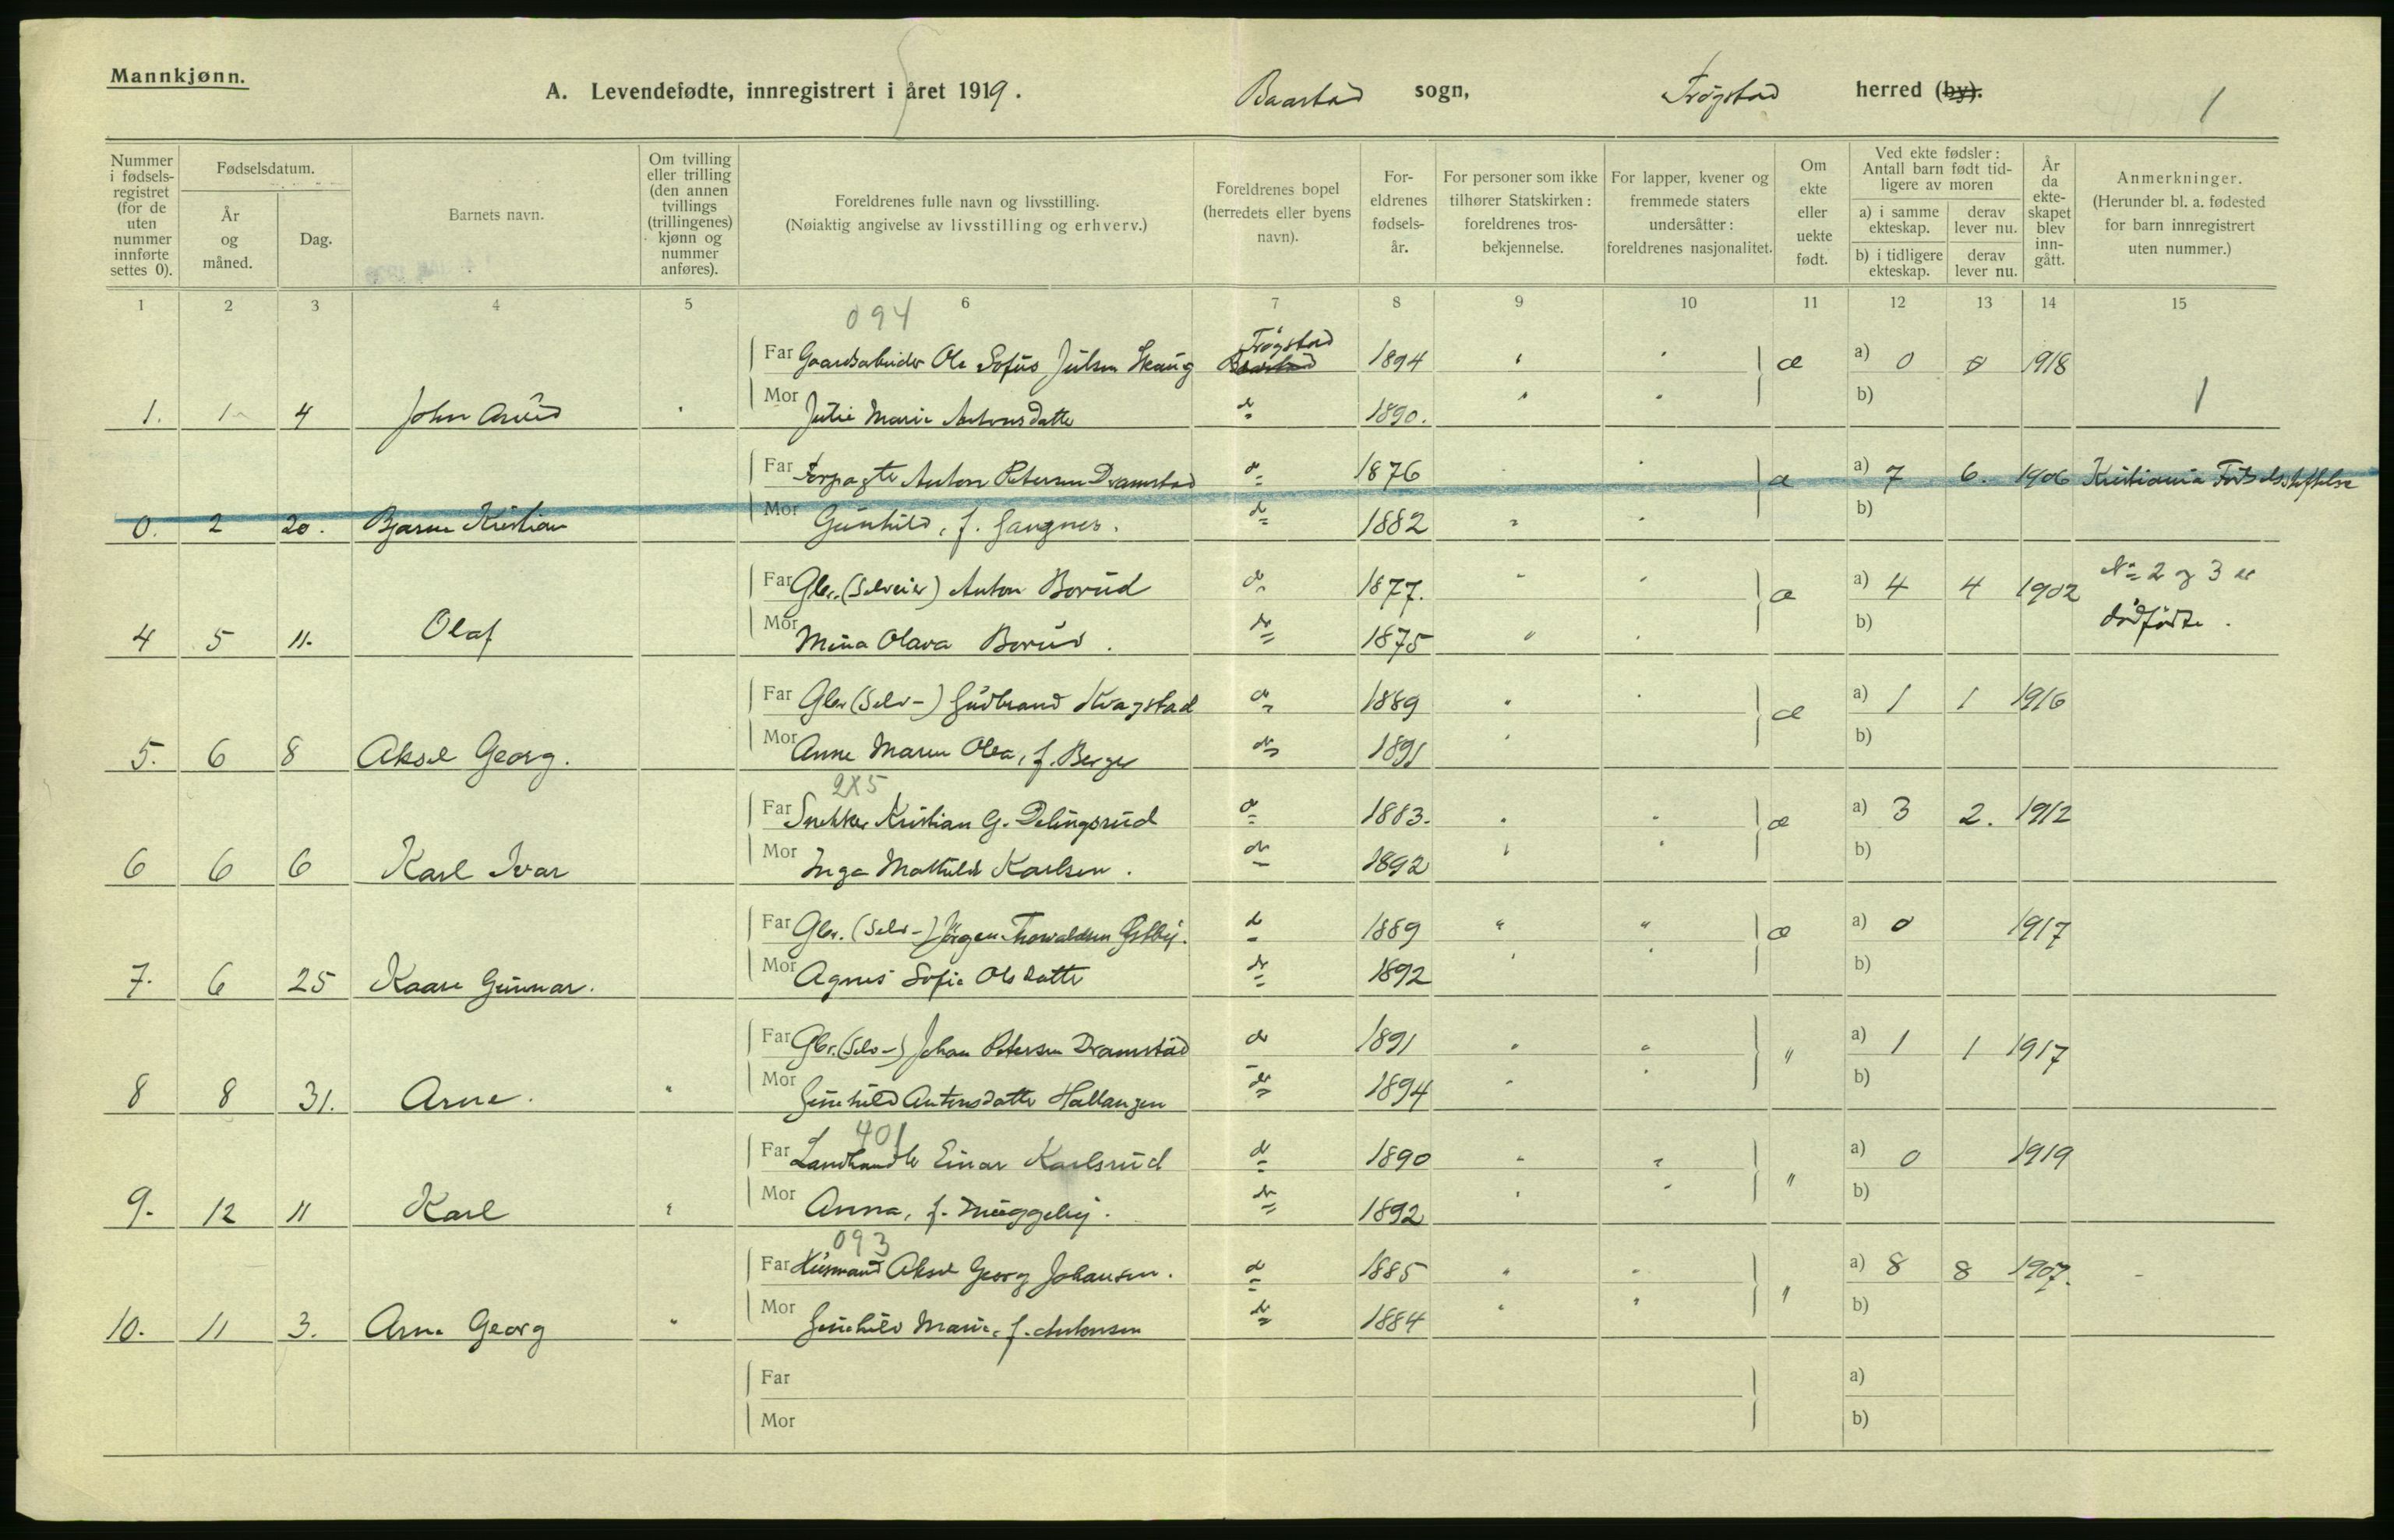 Mannkjønn.
A. Levendefødte, innregistrert i året 1919. Baastad sogn, Trøgstad herred (by). 1
Nummer i fødselsregistret (for de uten nummer innførte settes 0).
Fødselsdatum.
År og måned.
Dag.
Barnets navn.
Om tvilling eller trilling (den annen tvillings (trillingenes) kjønn og nummer anføres).
Foreldrenes fulle navn og livsstilling.
(Nøiaktig angivelse av livsstilling og erhverv.)
Foreldrenes bopel (herredets eller byens navn).
Foreldrenes fødselsår.
For personer som ikke tilhører Statskirken: foreldrenes trosbekjennelse.
For lapper, kvener og fremmede staters undersåtter: foreldrenes nasjonalitet.
Om ekte eller uekte født.
Ved ekte fødsler: Antall barn født tidligere av moren
a) i samme ekteskap. derav lever nu.
b) i tidligere ekteskap. derav lever nu.
År da ekteskapet blev inngått.
Anmerkninger.
(Herunder bl. a. fødested for barn innregistrert uten nummer.)
1 2 3 4 5 6 7 8 9 10 11 12 13 14 15
094
Far Gaardsarbeider Ole Sofus Julsen Skaug Trøgstad Baastad 1894 " " æ a) 0 0 1918
1. 1 4 John Arvid " Mor Julie Marie Antonsdatter do 1890. " " b) 1
Far Forpagter Anton Petersen Dramstad do 1876 " " æ a) 7 6. 1906 Kristiania Fødselsstiftelse
0. 2 20. Bjarne Kristian Mor Gunhild, f. Gangnes. do 1882 " " b)
Far Gbr. (Selveier) Anton Borud do 1877. " " æ a) 4 4 1902 No 2 og 3 er
4 5 11. Olaf Mor Mina Olava Borud. do 1875 " " b) dødfødte.
Far Gbr (Selv-) Gudbrand Kvagstad do 1889 " " æ a) 1 1 1916
5. 6 8 Aksel Georg. Mor Anne Maren Olea, f. Berger do 1891 " b)
2X5
Far Snekker Kristian G. Delingsrud do 1883. " " æ a) 3 2. 1912
6 6 6 Karl Ivar Mor Inga Mathilde Karlsen. do 1892 " " b)
Far Gbr. (Selv-) Jørgen Thorvaldsen Østby. do 1889 " " æ a) 0 1917
7. 6 25 Kaare Gunnar. Mor Agnes Sofie Olsdatter do 1892 " " b)
Far Gbr. (Selv-) Johan Petersen Dramstad do 1891 " " " a) 1 1 1917
8 8 31. Arne. " Mor Gunhild Antonsdatter Hallangen do 1894 " " b)
401
Far Landhandler Einar Karlsrud do 1890 " " " a) 0 1919
9. 12 11 Karl " Mor Anna, f. Muggeby. do 1892 " " b)
093
Far Husmand Aksel Georg Johansen. do 1885 " " " a) 8 8 1907. -
10. 11 3. Arne Georg " Mor Gunhild Marie, f. Antonsen do 1884 " " b)
Far a)
Mor b)